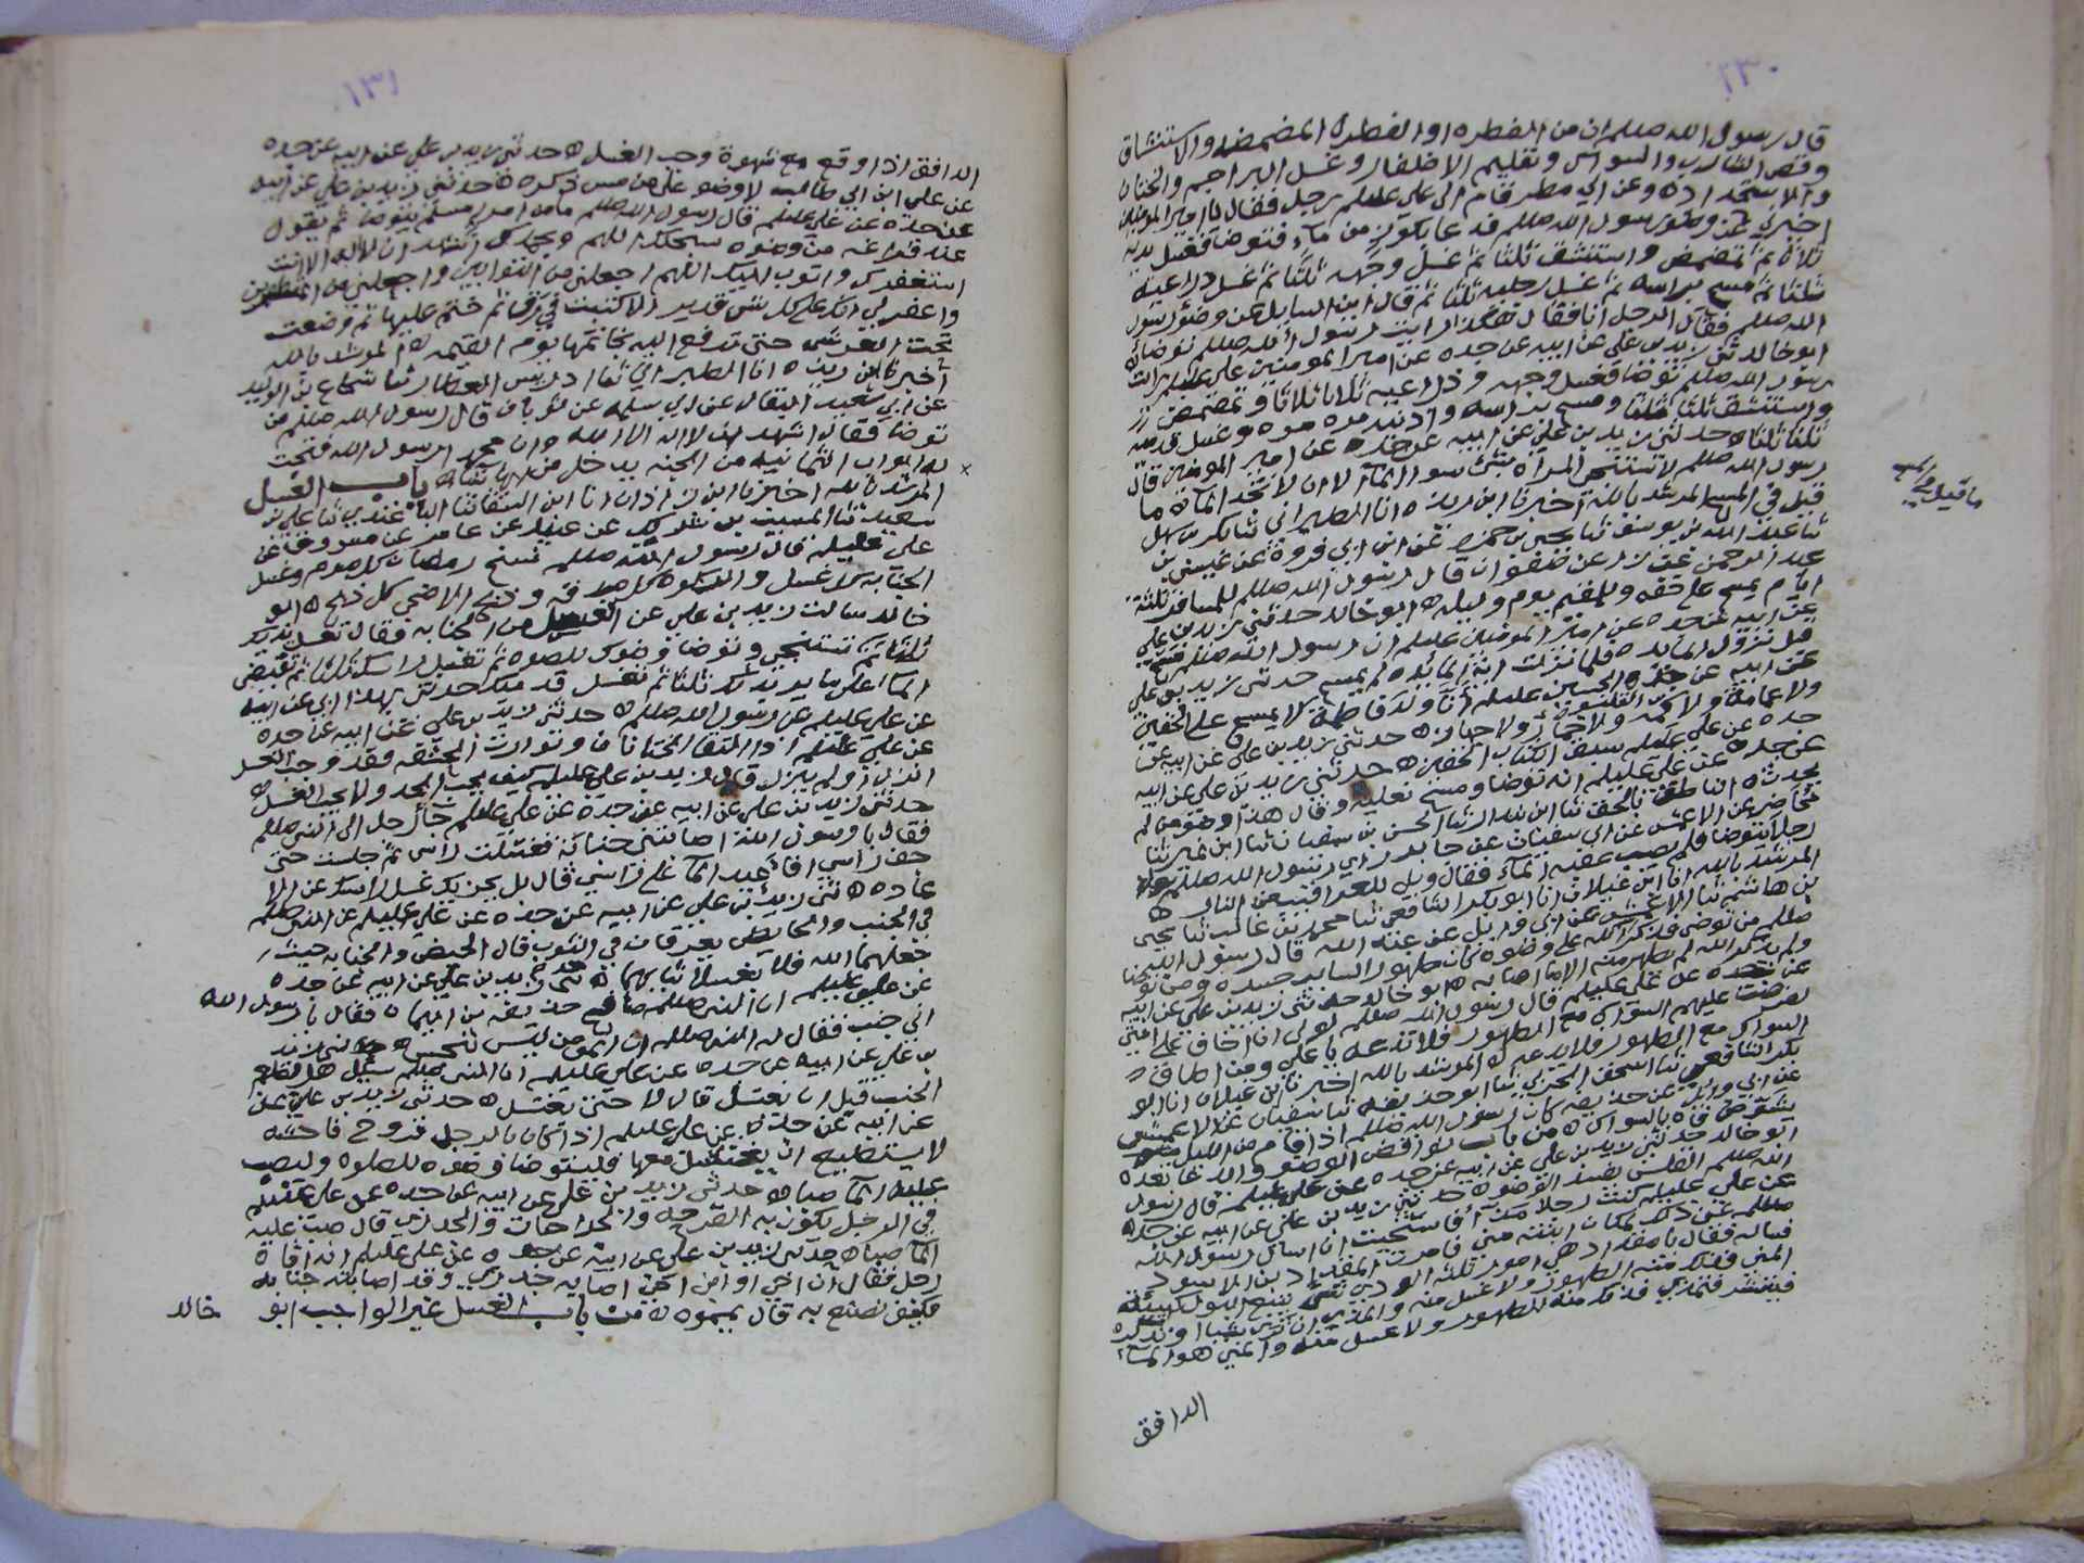 ١٣٠
قال رسول الله صللم ان من الفطره او الفطرة المضمضه والاستنشاق
وقص الشارب والسواك وتقليم الاظفار وغسل البراجم والختان
والاستحداد ه وعن ابي مطر قام الى علي عليلم رجل فقال يا امير المومنين
اخبرني عن وضو رسول الله صللم فدعا بكوز من ماء فتوضا فغسل يديه
ثلاثا ثم تمضمض واستنشق ثلثا ثم غسل وجهه ثلثا ثم غسل ذراعيه
ثلثا ثم مسح براسه ثم غسل رجليه ثلثا ثم قال اين السايل عن وضو رسول
الله صللم فقال الرجل انا فقال هكذا رايت رسول الله صللم توضا ه
ابو خالد ثني زيد بن علي عن ابيه عن جده عن امير المومنين علي عليلم رايت
رسول الله صللم توضا فغسل وجهه وذراعيه ثلاثا ثلاثا وتمضمض
واستنشق ثلثا ثلثا ومسح براسه واذنيه مره مره وغسل قدميه
ثلثا ثلثا ه حدثني زيد بن علي عن ابيه عن جده عن امير المومنين قال
رسول الله صللم لا تستنجي المراه بشي سوى الما الا ان لا تجد الما ه ما
قيل في المسح المرشد بالله اخبرنا ابن ريذه انا الطبراني ثنا بكر بن سهل
ثنا عبد الله بن يوسف ثنا يحيى بن حمزه عن ابن ابي فروة عن عيسى بن
عبد الرحمن عن زر عن صفوان قال رسول الله صللم للمسافر ثلثة
ايام يمسح على خفه وللمقيم يوم وليله ه ابو خالد حدثني زيد بن علي
عن ابيه عن جده عن امير المومنين عليلم ان رسول الله صللم مسح
قبل نزول المايده فلما نزلت اية المايده لم يمسح حدثني زيد بن علي
عن ابيه عن جده الحسين عليلم انا ولد فاطمة لا نمسح على الخفين
ولا عمامة ولا كمه ولا خمار ولا جهاز ه حدثني زيد بن علي عن ابيه عن
جده عن علي عليلم سبق الكتاب الخفين ه حدثني زيد بن علي عن ابيه
عن جده عن علي عليلم انه توضا ومسح نعليه وقال هذا وضو من لم
يحدث ه الناطق بالحق
المرشد بالله انا ابن غيلان انا ابو بكر الشافعي ثنا محمد بن غالب ثنا يحيى
بن هاشم ثنا الاعمش عن ابي وايل عن عبد الله قال رسول الله
صللم من توضى فذكر الله على وضوه كان طهورا لساير جسده ومن توضا
ولم يذكر الله لم يطهر منه الا ما اصابه ه ابو خالد حدثني زيد بن علي عن ابيه
عن جده عن علي عليلم قال رسول الله صللم لولا اني اخاف على امتي
لفرضت عليهم السواك مع الطهور فلا تدعه يا علي ومن اطاق
السواك مع الطهور فلا يدعه ه المرشد بالله اخبرنا ابن غيلان انا ابو
بكر الشافعي ثنا اسحق الحربي ثنا ابو حذيفه ثنا سفيان عن الاعمش
عن ابي وايل عن حذيفه كان رسول الله صللم اذا قام من الليل
يشوص فاه بالسواك ه من باب نواقض الوضو
ابو خالد حدثني زيد بن علي عن ابيه عن جده عن علي عليلم قال رسول
الله صللم القلس يفسد الوضوه حدثني زيد بن علي عن ابيه عن جده
عن علي عليلم كنت رجلا مذاا فاستحييت ان اسال رسول الله
صللم عن ذلك لمكان ابنته مني فامرت المقداد بن الاسود
فساله فقال يا مقداد هي امور ثلثه
ما قيل في المسح
الدافق
١٣١
الدافق اذا وقع مع شهوة وجب الغسل ه حدثني زيد بن علي عن ابيه عن جده
عن علي ابن ابي طالب لا وضو على من مس ذكره ه حدثني زيد بن علي عن ابيه
عن جده عن علي عليلم قال رسول الله صللم ما من امرء مسلم يتوضا ثم يقول
عند فراغه من وضوه سبحنك اللهم وبحمدك اشهد ان لا اله الا انت
استغفرك واتوب اليك اللهم اجعلني من التوابين واجعلني من المتطهرين
واغفر لي انك على كل شي قدير الا كتبت في رق ثم ختم عليها ثم وضعت
تحت العرش حتى تدفع اليه بخاتمها يوم القيمه ه المرشد بالله
اخبرنا ابن ريذه انا الطبراني ثنا ادريس العطار ثنا شجاع بن الوليد
عن ابي سعيد البقال عن ابي سلمه عن ثوبان قال رسول الله صللم من
توضا فقال اشهد ان لا اله الا الله وان محمدا رسول الله فتحت
له ابواب الثمانيه من الجنه يدخل من ايها شا ه باب الغسل
المرشد بالله اخبرنا ابن
علي عليلم قال رسول الله صللم نسخ رمضان كل صوم وغسل
الجنابه كل غسل والزكوة كل صدقه وذبح الاضحى كل ذبح ه ابو
خالد سالت زيد بن علي عن الغسل من الجنابه فقال تغسل يديك
ثلثا ثم تستنجي وتوضا وضوك للصلوه ثم تغسل راسك ثلثا ثم تفيض
الما على ساير جسدك ثلثا ثم تغسل قدميك حدثني بهذا ابي عن ابيه
عن علي عليلم عن رسول الله صللم ه حدثني زيد بن علي عن ابيه عن جده
عن علي عليلم اذا التقا الختانان وتوارت الحشفه فقد وجب الغسل
انزل او لم ينزل قال زيد بن علي عليلم كيف يجب الحد ولا يجب الغسل ه
حدثني زيد بن علي عن ابيه عن جده عن علي عليلم جا رجل الى النبي صللم
فقال يا رسول الله اصابتني جنابة فغسلت راسي ثم جلست حتى
جف راسي افاعيد الما على راسي قال بل يجزيك غسل راسك عن الا
عاده ه ثني زيد بن علي عن ابيه عن جده عن علي عليلم عن النبي صللم
في الجنب والحايض يعرقان في الثوب قال الحيض والجنابه حيث
جعلهما الله فلا يغسلا ثيابهما ه ثني زيد بن علي عن ابيه عن جده
عن علي عليلم ان النبي صللم صافح حذيفه بن اليمان فقال يا رسول الله
اني جنب فقال له النبي صللم ان المومن ليس بنجس ه حدثني زيد
بن علي عن ابيه عن جده عن علي عليلم ان النبي صللم سيل هل يطعم
الجنب قبل ان يغتسل قال لا حتى يغتسل ه حدثني زيد بن علي عن
عن ابيه عن جده عن علي عليلم اذا كان بالرجل قروح فاحشه
لا يستطيع ان يغتسل معها فليتوضا وضوه للصلوه وليصب
عليه الما صبا ه حدثني زيد بن علي عن ابيه عن جده عن علي عليلم
في الرجل يكون به القرحه والجراحات والجدري قال صب عليه
الما صبا ه حدثني زيد بن علي عن ابيه عن جده عن علي عليلم انه اتاه
رجل فقال ان اخي او ابن اخي اصابه جدري وقد اصابته جنابه
فكيف نصنع به قال يمموه ه من باب الغسل غير الواجب ابو
خالد